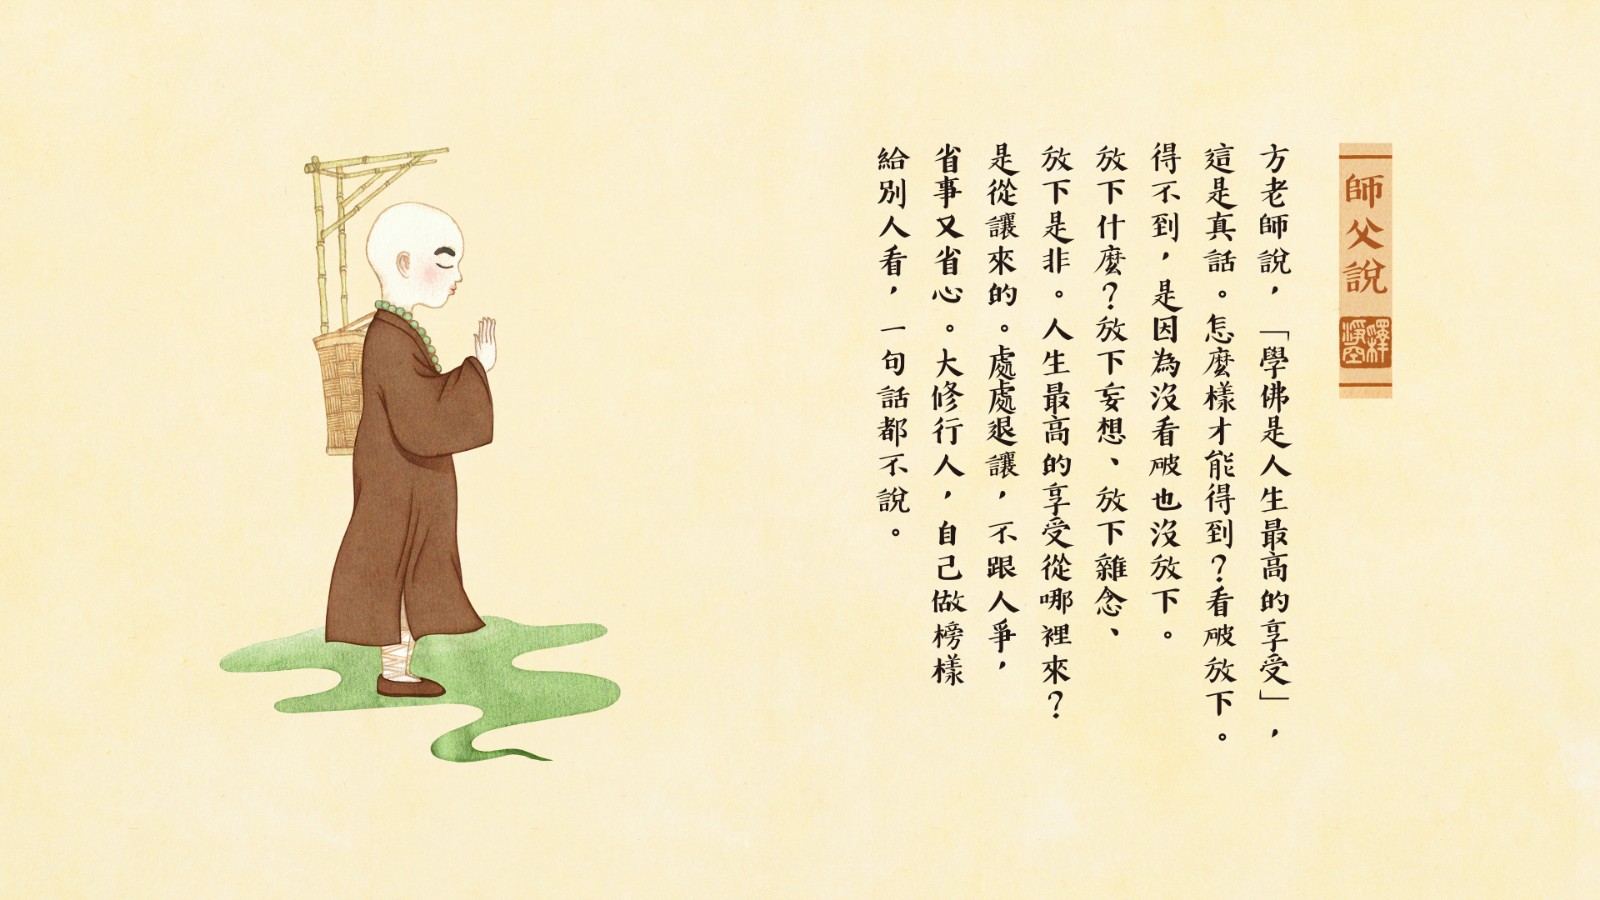 師父說
釋淨空
方老師說，「學佛是人生最高的享受」，
這是真話。怎麼樣才能得到？看破放下。
得不到，是因為沒看破也沒放下。
放下什麼？放下妄想、放下雜念、
放下是非。人生最高的享受從哪裡來？
是從讓來的。處處退讓，不跟人爭，
省事又省心。大修行人，自己做榜樣
給別人看，一句話都不說。